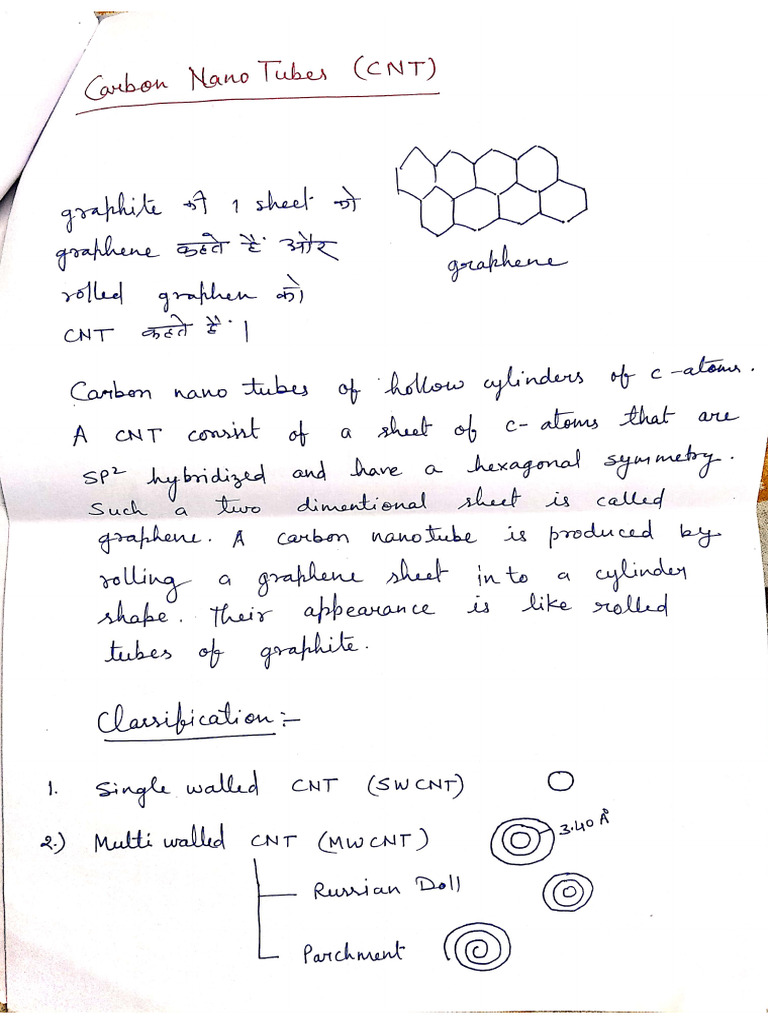 Carbon Nano Tubes (CNT)
graphite की 1 sheet को
graphene कहते हैं और
rolled graphen को
CNT कहते हैं।
graphene
Carbon nano tubes of hollow cylinders of c-atoms.
A CNT consist of a sheet of c-atoms that are
SP² hybridized and have a hexagonal symmetry.
Such a two dimentional sheet is called
graphene. A carbon nanotube is produced by
rolling a graphene sheet in to a cylinder
shape. Their appearance is like rolled
tubes of graphite.
Classification:-
1. Single walled CNT (SWCNT)
2.) Multi walled CNT (MWCNT)
3.40 Å
Russian Doll
Parchment